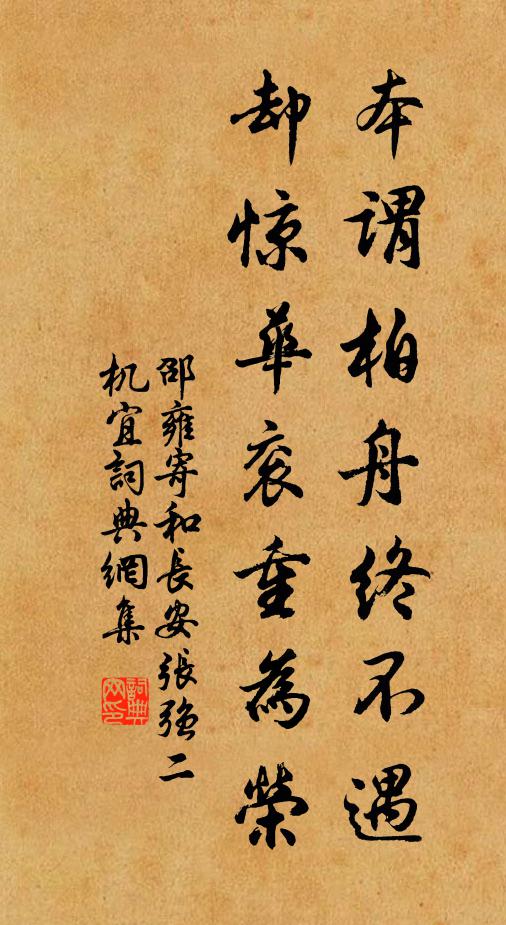 本谓柏舟终不遇
却惊华衮重为荣
邵雍寄和長安張强二
机宜詞典網集
詞典
网印